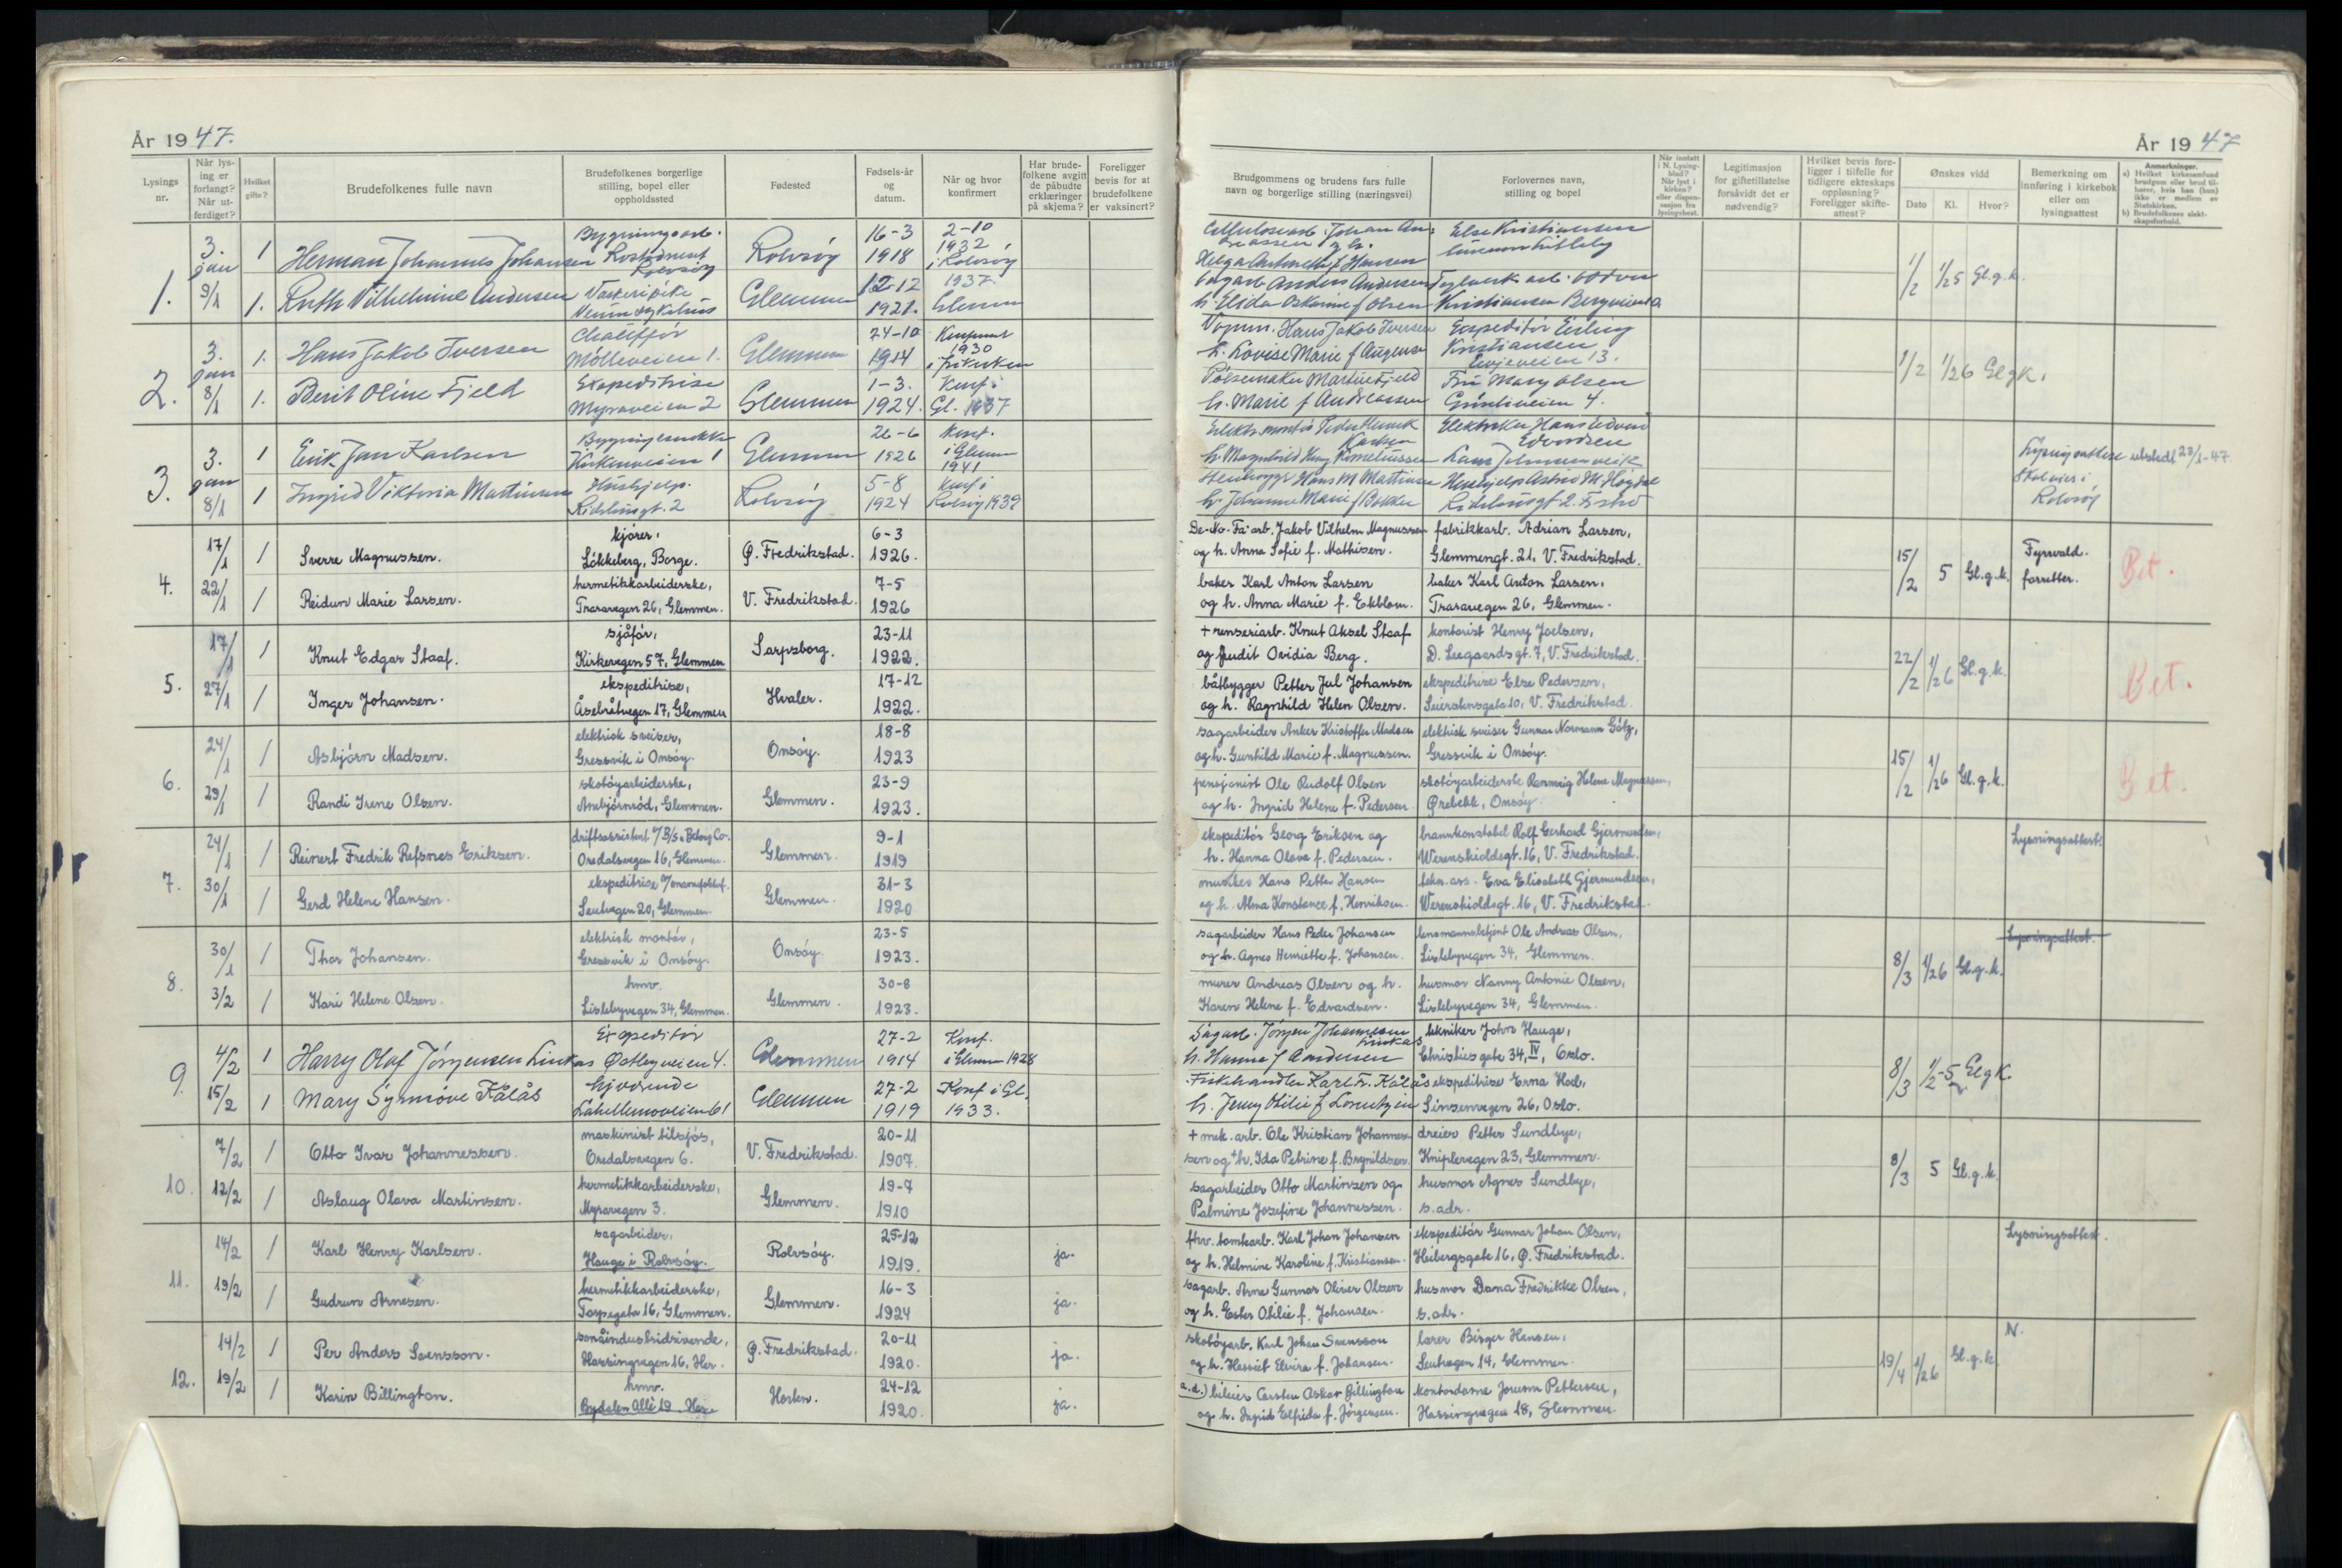 År 1947.
Lysings nr.
Når lysing er forlangt? Når utferdiget?
Hvilket gifte?
Brudefolkenes fulle navn
Brudefolkenes borgerlige stilling, bopel eller oppholdssted
Fødested
Fødsels-år og datum.
Når og hvor konfirmert
Har brudefolkene avgitt de påbudte erklæringer på skjema?
Foreligger bevis for at brudefolkene er vaksinert?
1.
3. jan 1 Herman Johannes Johansen
Rolvsøy 16-3 1918
2-10 1932 i Rolvsøy
9/1 1. Ruth Vilhelmine Andersen
Glemmen 12-12 1921.
1937. Glemm
2.
3. jan 1. Hans Jakob Iversen
Mølleveien 1. Glemmen 24-10 1914
1930
8/1 1. Berit Oline Fjeld
Ekspeditrise
Myraveien 2 Glemmen 1-3. 1924.
Konf i Gl. 1937
3.
3. jan 1 Erik Jan Karlsen
Kirkeveien 1 Glemmen 26-6 1926
Konf. i Glemm 1941
8/1 1 Ingrid Viktoria Martinsen
Hushjelp.
Rolvsøy 5-8 1924
Konf i Rolvsøy 1939
4.
17/1 1 Sverre Magnussen.
kjører,
Løkkeberg, Borge. Ø. Fredrikstad. 6-3 1926.
22/1 1 Reidun Marie Larsen.
hermetikkarbeiderske,
Traravegen 26, Glemmen. V. Fredrikstad. 7-5 1926
5.
17/1 1 Knut Edgar Staaf.
sjåfør,
Kirkevegen 57, Glemmen Sarpsborg. 23-11 1922.
27/1 1 Inger Johansen.
ekspeditrise,
Åsebråtvegen 17, Glemmen Hvaler. 17-12 1922.
6.
24/1 1 Asbjørn Madsen.
elektrisk sveiser,
Gressvik i Onsøy. Onsøy. 18-8 1923
29/1 1 Randi Irene Olsen.
skotøyarbeiderske,
Ambjørnrød, Glemmen. Glemmen. 23-9 1923.
7.
24/1 1 Reinert Fredrik Refsnes Eriksen.
Oredalsvegen 16, Glemmen. Glemmen. 9-1 1919
30/1 1 Gerd Helene Hansen.
Leutvegen 20, Glemmen. Glemmen. 31-3 1920
8.
30/1 1 Thor Johansen.
elektrisk montør,
Gressvik i Onsøy. Onsøy. 23-5 1923.
3/2 1 Kari Helene Olsen.
hmv.
Lislebyvegen 34, Glemmen. Glemmen. 30-8 1923.
9.
4/2 1 Harry Olaf Jørgensen Linkas
Ekspeditør
Østbyveien 4. Glemmen 27-2 1914
Konf. i Glemm 1928
15/2 1 Mary Synnøve Kålås
hjvørende
Glemmen 27-2 1919
Konf i Gl. 1933.
10.
7/2 1 Otto Ivar Johannessen.
maskinist tilsjøs,
Oredalsvegen 6. V. Fredrikstad. 20-11 1907.
12/2 1 Aslaug Olava Martinsen.
hermetikkarbeiderske,
Myravegen 3. Glemmen. 19-7 1910
11.
14/2 1 Karl Henry Karlsen.
sagarbeider,
Hauge i Rolvsøy. Rolvsøy. 25-12 1919. ja.
19/2 1 Gudrun Arnesen.
hermetikkarbeiderske,
Torpegata 16, Glemmen. Glemmen. 16-3 1924 ja.
12.
14/2 1 Per Anders Svensson.
småindustridrivende,
Hassingvegen 16, Her. Ø. Fredrikstad. 20-11 1920. ja.
19/2 1 Karin Billington.
hmv.
Bydalen Allè 19. Horten. 24-12 1920. ja.
År 1947
Brudgommens og brudens fars fulle navn og borgerlige stilling (næringsvei)
Forlovernes navn, stilling og bopel
Når inntatt i N. Lysingblad? Når lyst i kirken? eller dispensasjon fra lysingshest.
Legitimasjon for giftetillatelse forsåvidt det er nødvendig?
Hvilket bevis foreligger i tilfelle for tidligere ekteskaps oppløsning? Foreligger skifteattest?
Ønskes vidd
Dato Kl. Hvor?
Bemerkning om innføring i kirkebok eller om lysingsattest
Anmerkninger.
a) Hvilket kirkesamfund brudgom eller brud tilhører, hvis han (hun) ikke er medlem av Statskirken.
b) Brudefolkenes slektskapsforhold.
Else Kristiansen
Helga Antonette f Hansen
Anders Andersen
h. Elida Oskarine f Olsen
1/2 1/25 Gl.g.k.
Hans Jakob Iversen Ekspeditør Erling
h. Lovise Marie f Kristiansen
Pølsemaker Martin Fjeld Fru Mary Olsen
h. Marie f Andreassen
1/2 1/26 Gl g k.
Elektriker Hans Edvin
Edvardsen
Hans M Martinsen
h. Johanne Marie f Bakken
utstedt 23/1-47.
Rolvsøy
De-No-Fa-arb. Jakob Vilhelm Magnussen fabrikkarb. Adrian Larsen,
og h. Anna Sofie f. Mathisen. Glemmengt. 21, V. Fredrikstad.
baker Karl Anton Larsen baker Karl Anton Larsen,
og h. Anna Marie f. Ekblom. Traravegen 26, Glemmen.
15/2 5 Gl.g.k. Fyrwald. forretter. Bet.
+ renseriarb. Knut Aksel Staaf kontorist Henry Joelsen,
og Judit Ovidia Berg. D. Leegaardsgt. 7, V. Fredrikstad.
båtbygger Petter Jul Johansen ekspeditrise Else Pedersen,
og h. Ragnhild Helen Olsen. Seierstensgata 10, V. Fredrikstad.
22/2 1/26 Gl.g.k. Bet.
sagarbeider Anker Kristoffer Madsen elektrisk sveiser Gunnar Normann Götz,
og h. Gunhild Marie f. Magnussen. Gressvik i Onsøy.
pensjonist Ole Rudolf Olsen skotøyarbeiderske Rannveig Helene Magnussen,
og h. Ingrid Helene f. Pedersen Ørebekk, Onsøy.
15/2 1/26 Gl.g.k. Bet.
ekspeditør Georg Eriksen og brannkonstabel Rolf Gerhard Gjermundsen,
h. Hanna Olava f. Pedersen. Werenskioldsgt. 16, V. Fredrikstad.
Lysningsattest.
Hans Petter Hansen Eva Elisabeth Gjermundsen,
og h. Alma Konstance f. Henriksen. Werenskioldsgt. 16, V. Fredrikstad.
sagarbeider Hans Peder Johansen lensmannsbetjent Ole Andreas Olsen,
og h. Agnes Henriette f. Johansen. Lislebyvegen 34, Glemmen.
murer Andreas Olsen og h. husmor Nanny Antonie Olsen,
Karen Helene f. Edvardsen. Lislebyvegen 34, Glemmen.
8/3 1/26 Gl.g.k. Lysningsattest.
Sagarb. Jørgen Johannesen Linkas tekniker John Hauge,
h. Hanna f Andersen Christiesgate 34, IV, Oslo.
Fiskehandler Karl Fr. Kålås ekspeditrise Erna Hoel,
h. Jenny Otilie f Lorentzen Sinsenvegen 26, Oslo.
8/3 1/2-5 Gl g K.
+ mek. arb. Ole Kristian Johannes- dreier Petter Sundbye,
sen og + h. Ida Petrine f. Brynildsen. Kniplevegen 23, Glemmen.
sagarbeider Otto Martinsen og husmor Agnes Sundbye,
Palmine Josefine Johannessen. s. adr.
8/3 5 Gl.g.k.
fhv. tomtearb. Karl Johan Johansen ekspeditør Gunnar Johan Olsen,
og h. Helmine Karoline f. Kristiansen. Heibergsgate 16, Ø. Fredrikstad.
Lysningsattest.
sagarb. Arne Gunnar Oliver Olsen husmor Dama Fredrikke Olsen,
og h. Ester Otilie f. Johansen. s. adr.
skotøyarb. Karl Johan Svensson lærer Birger Hansen,
og h. Harriet Elvira f. Johansen. Leutvegen 14, Glemmen.
a.d.) bileier Carsten Oskar Billington kontordame Jorunn Pettersen,
og h. Ingrid Elfrida f. Jørgensen. Hassingvegen 18, Glemmen.
19/4 1/26 Gl.g.k. N.